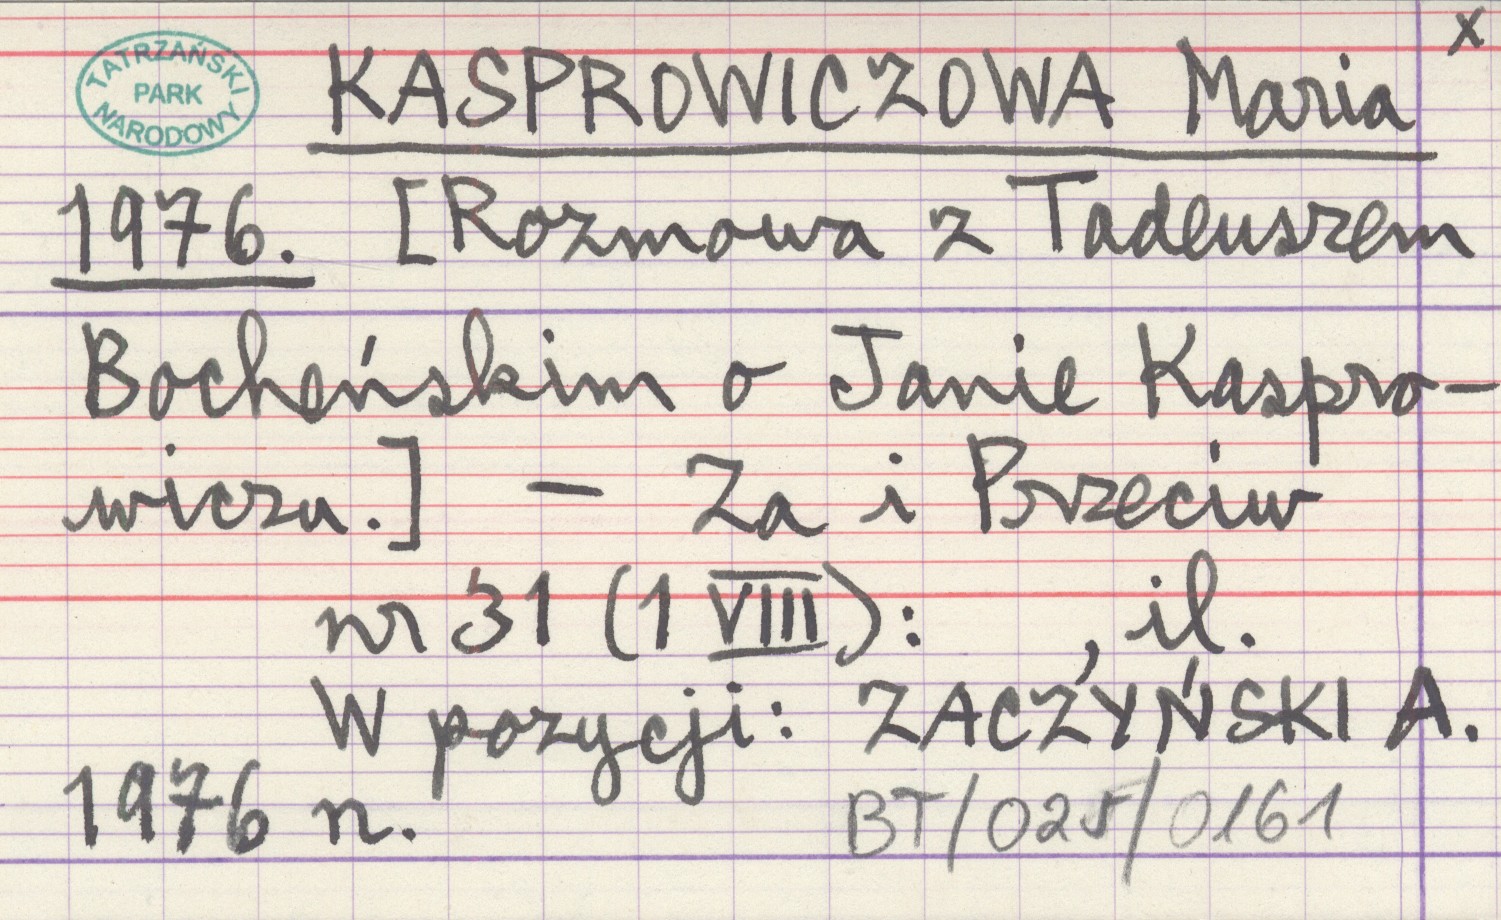 x
TATRZAŃSKI
PARK
NARODOWY
KASPROWICZOWA Maria
1976. [Rozmowa z Tadeuszem
Bocheńskim o Janie Kaspro-
wiczu.] — Za i Przeciw
nr 31 (1 VIII):    , il.
W pozycji: ZACZYŃSKI A.
1976 n.
BT/025/0161